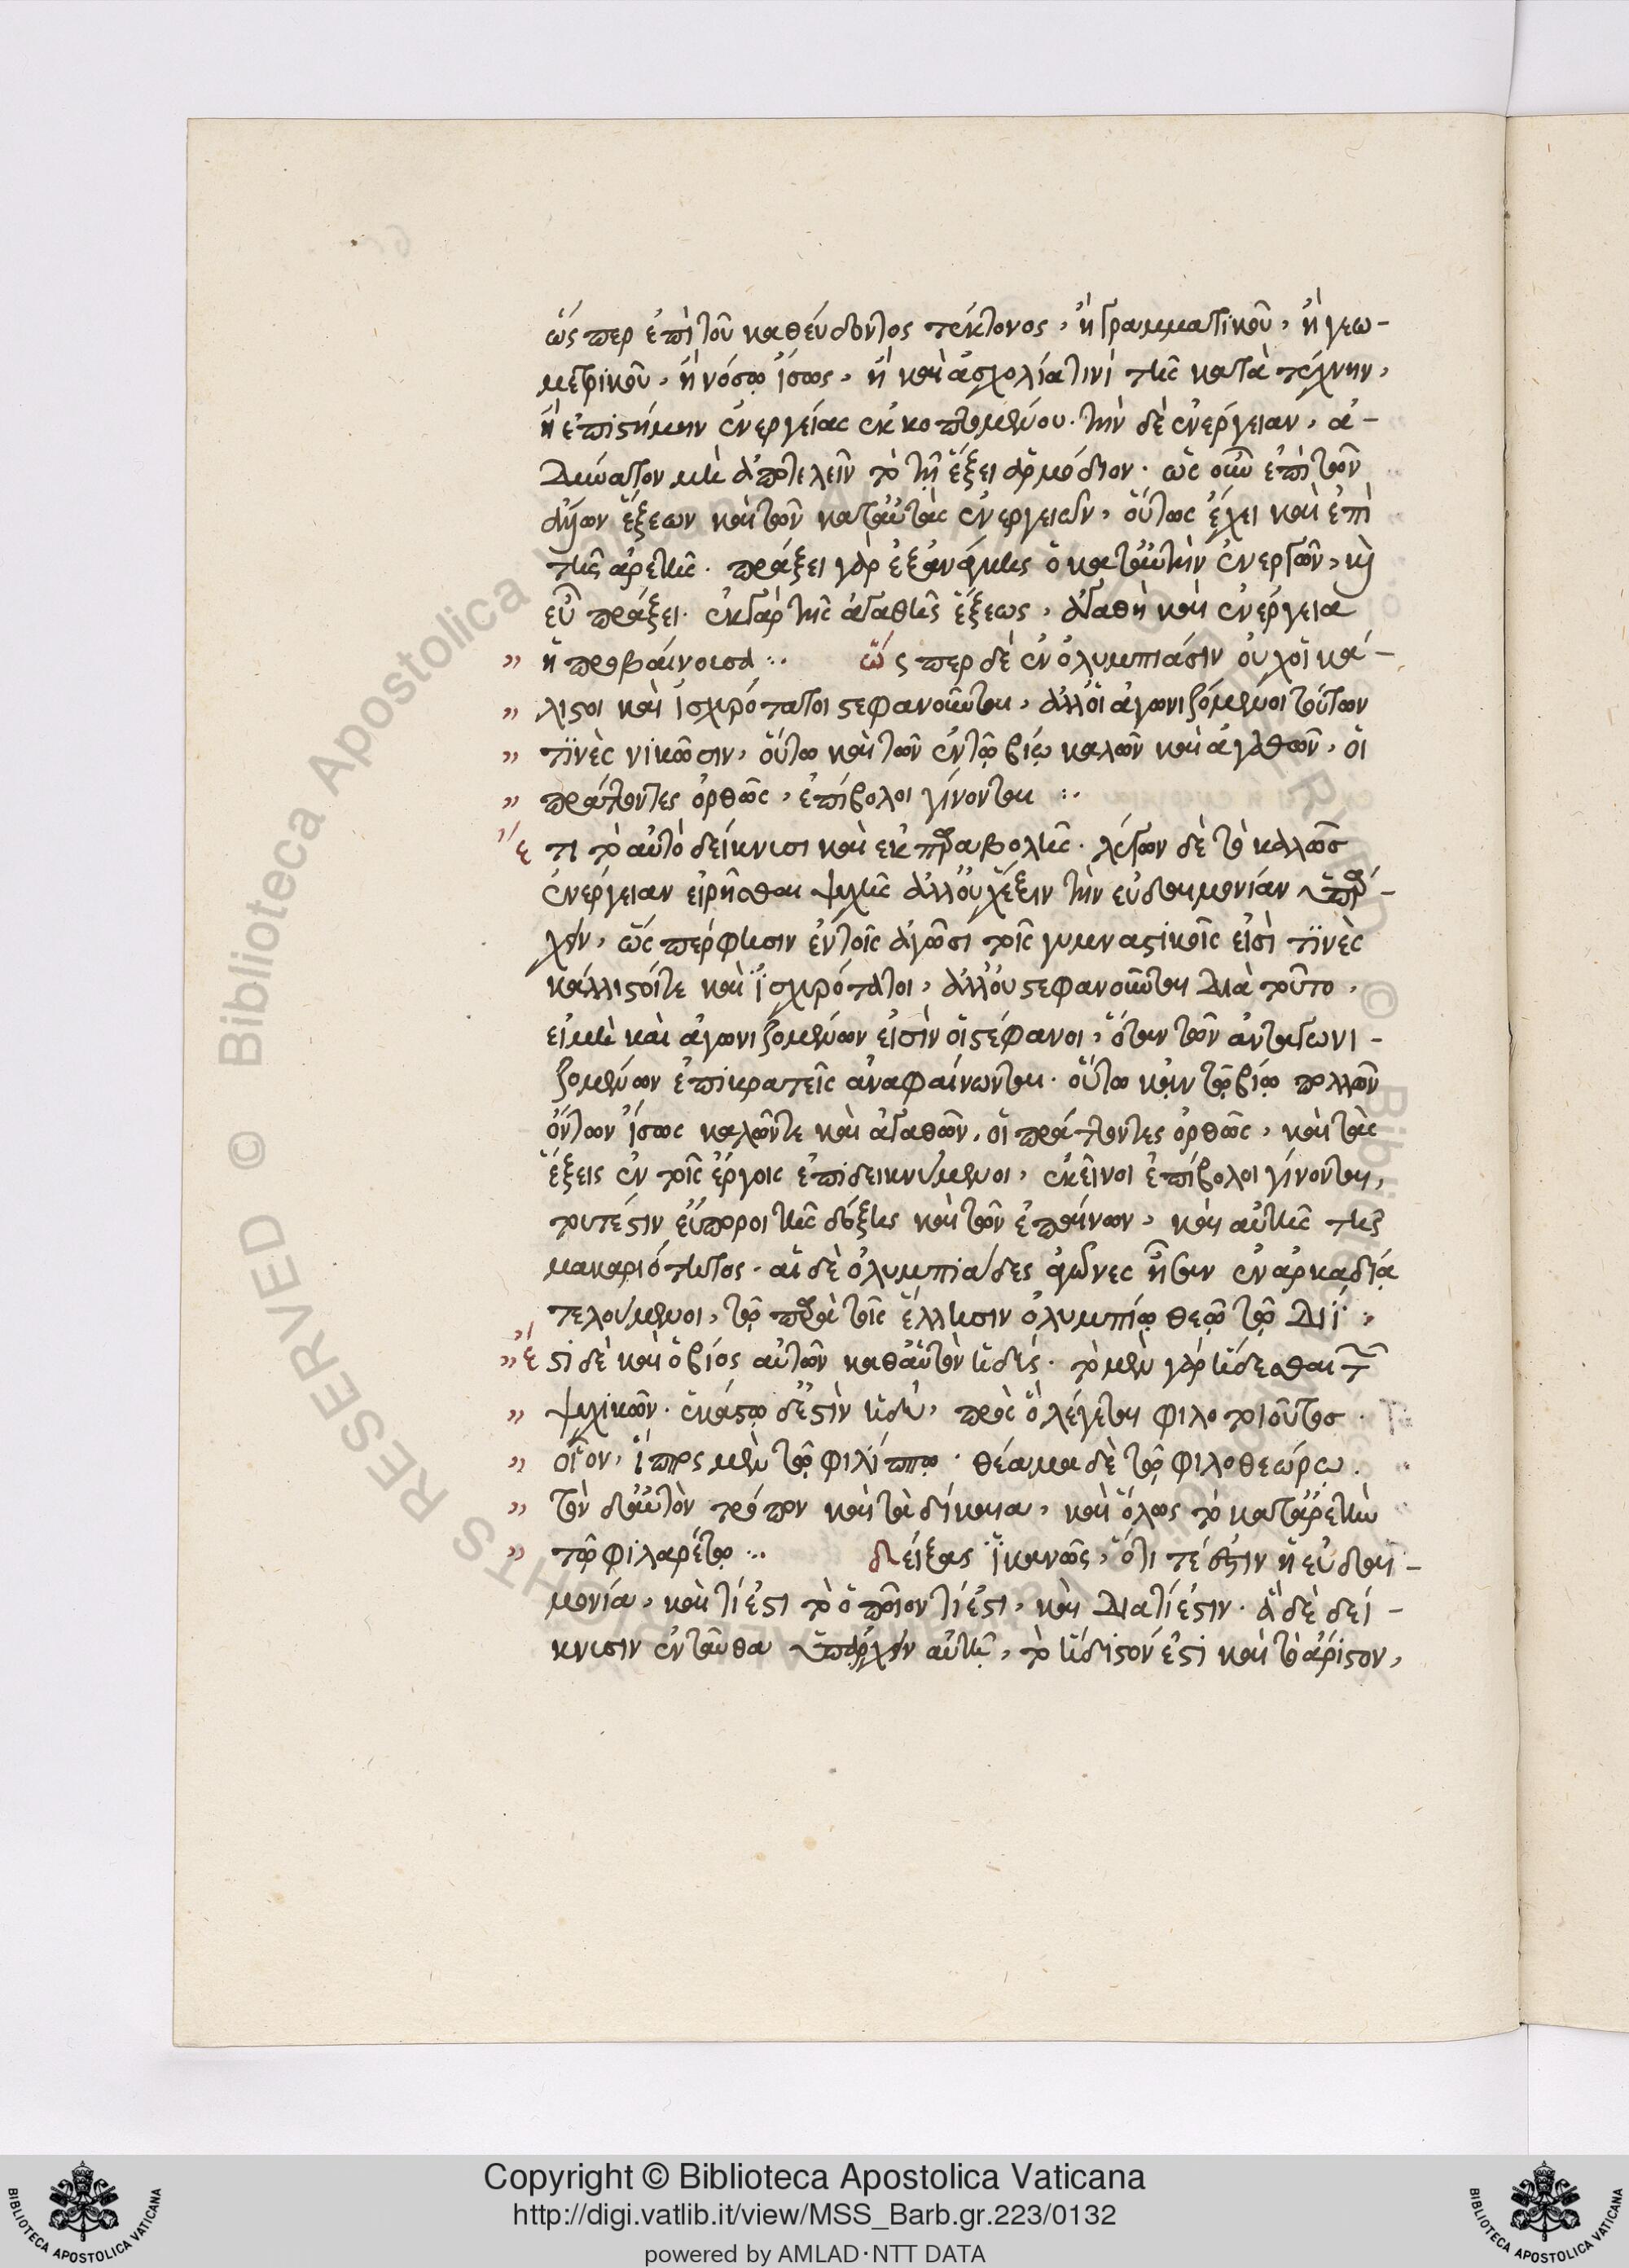 ὥς περ ἐπὶ τοῦ καθεύδοντος τέκτονος, ἢ γραμματικοῦ, ἢ γεω-
μετρικοῦ, ἢ νόσῳ ἴσως, ἢ καὶ ἀσχολία τινὶ τῆς κατὰ τέχνην,
ἢ ἐπιστήμην ἐνεργείας ἐκκοπτομένου. τὴν δὲ ἐνέργειαν, ἀ-
δύνατον μὴ ἀποτελεῖν τὸ τῇ ἕξει ἁρμόδιον. ὡς οὖν ἐπὶ τῶν
ἄλλων ἕξεων καὶ τῶν κατ' αὐτὰς ἐνεργειῶν, οὕτως ἔχει καὶ ἐπὶ
τῆς ἀρετῆς. πράξει γὰρ ἐξ ἀνάγκης ὁ κατ' αὐτὴν ἐνεργῶν, καὶ
εὖ πράξει. ἐκ γὰρ τῆς ἀγαθῆς ἕξεως, ἀγαθὴ καὶ ἐνέργεια
" ἡ προβαίνουσα :. ὥς περ δὲ ἐν ὀλυμπιάσιν οὐχ οἱ κά-
" λιστοι καὶ ἰσχυρότατοι στεφανοῦνται, ἀλλ' οἱ ἀγωνιζόμενοι τούτων
" τινὲς νικῶσιν, οὕτω καὶ τῶν ἐν τῷ βίῳ καλῶν καὶ ἀγαθῶν, οἱ
" πράττοντες ὀρθῶς, ἐπήβολοι γίνονται :.
ἔτι τὸ αὐτὸ δείκνυσι καὶ ἐκ παραβολῆς. λέγων δὲ τὸ καλῶς
ἐνέργειαν εἰρῆσθαι ψυχῆς ἀλλ' οὐχ ἕξιν τὴν εὐδαιμονίαν ὑπάρ-
χειν, ὥς περ φησιν ἐν τοῖς ἀγῶσι τοῖς γυμναστικοῖς εἰσὶ τινὲς
κάλλιστοί τε καὶ ἰσχυρότατοι, ἀλλ' οὐ στεφανοῦνται διὰ τοῦτο,
εἰ μὴ καὶ ἀγωνιζομένων εἰσὶν οἱ στέφανοι, ὅταν τῶν ἀνταγωνι-
ζομένων ἐπικρατεῖς ἀναφαίνωνται. οὕτω κἀν τῷ βίῳ πολλῶν
ὄντων ἴσως καλῶν τε καὶ ἀγαθῶν, οἱ πράττοντες ὀρθῶς, καὶ τὰς
ἕξεις ἐν τοῖς ἔργοις ἐπιδεικνύμενοι, ἐκεῖνοι ἐπήβολοι γίνονται,
τουτέστιν εὔποροι τῆς δόξης καὶ τῶν ἐπαίνων, καὶ αὐτῆς τῆς
μακαριότητος. αἱ δὲ ὀλυμπιάδες ἀγῶνες ἦσαν ἐν ἀρκαδίᾳ
τελούμενοι, τῷ παρὰ τοῖς ἕλλησιν ὀλυμπίῳ θεῷ τῷ Διΐ.
" ἔστι δὲ καὶ ὁ βίος αὐτῶν καθ' αὑτὸν ἡδύς. τὸ μὲν γὰρ ἥδεσθαι τῶν
" ψυχικῶν. ἑκάστῳ δ' ἐστὶν ἡδὺ, πρὸς ὃ λέγεται φιλοτοιοῦτος.
" οἷον, ἵππος μὲν τῷ φιλίππῳ. θέαμα δὲ τῷ φιλοθεώρῳ.
" τὸν δ' αὐτὸν τρόπον καὶ τὰ δίκαια, καὶ ὅλως τὰ κατ' ἀρετὴν
" τῷ φιλαρέτῳ :. Δείξας ἱκανῶς, ὅτι τέ ἐστιν ἡ εὐδαι-
μονία, καὶ τί ἐστι τὸ ὁποῖον τί ἐστι, καὶ διατί ἐστιν. ἃ δὲ δεί-
κνυσιν ἐνταῦθα ὑπάρχειν αὐτῇ, τὸ ἥδιστόν ἐστι καὶ τὸ ἄριστον,
Copyright © Biblioteca Apostolica Vaticana
http://digi.vatlib.it/view/MSS_Barb.gr.223/0132
powered by AMLAD·NTT DATA